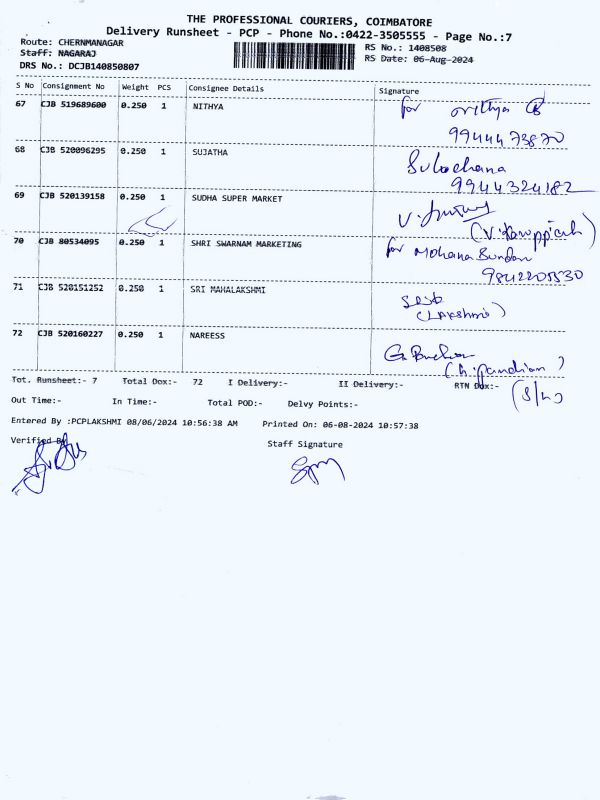 THE PROFESSIONAL COURIERS, COIMBATORE
Delivery Runsheet - PCP - Phone No.:0422-3505555 - Page No.:7
Route: CHERNMANAGAR
RS No.: 1408508
Staff: NAGARAJ
RS Date: 06-Aug-2024
DRS No.: DCJB140850807
S No Consignment No Weight PCS Consignee Details Signature
67 CJB 519689600 0.250 1 NITHYA for nithya
9944473870
68 CJB 520096295 0.250 1 SUJATHA Sulochana
9944324182
69 CJB 520139158 0.250 1 SUDHA SUPER MARKET
70 CJB 80534095 0.250 1 SHRI SWARNAM MARKETING for Mohana
71 CJB 520151252 0.250 1 SRI MAHALAKSHMI
(LAKshmi)
72 CJB 520160227 0.250 1 NAREESS
Tot. Runsheet:- 7 Total Dox:- 72 I Delivery:- II Delivery:- RTN Dox:-
Out Time:- In Time:- Total POD:- Delvy Points:-
Entered By :PCPLAKSHMI 08/06/2024 10:56:38 AM Printed On: 06-08-2024 10:57:38
Verified By
Staff Signature